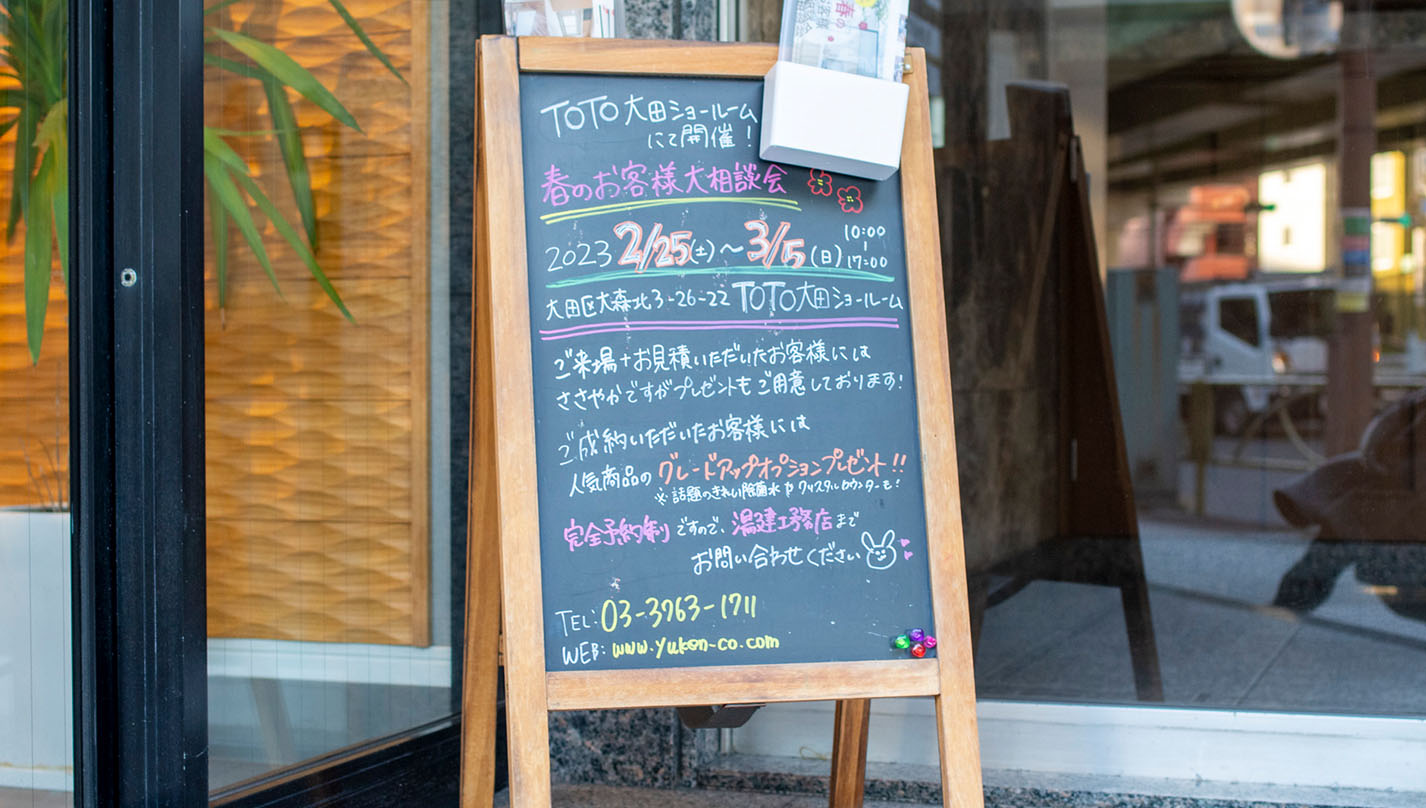 TOTO大田ショールーム
にて開催！
春のお客様大相談会
2023 2/25(土)～3/5(日) 10:00-17:00
大田区大森北3-26-22 TOTO大田ショールーム
ご来場+お見積いただいたお客様には
ささやかですがプレゼントもご用意しております！
ご成約いただいたお客様には
人気商品のグレードアップオプションプレゼント!!
※話題のきれい除菌水やクリスタルカウンターも！
完全予約制ですので、湯建工務店まで
お問い合わせください
TEL:03-3763-1711
WEB:www.yuken-co.com